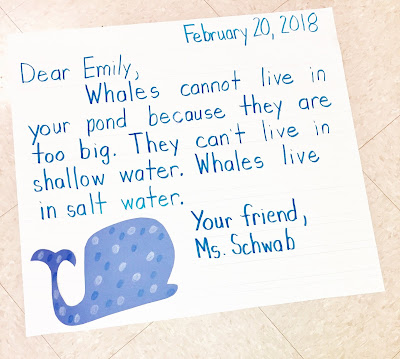 February 20, 2018
Dear Emily,
Whales cannot live in
your pond because they are
too big. They can't live in
shallow water. Whales live
in salt water.
Your friend,
Ms. Schwab